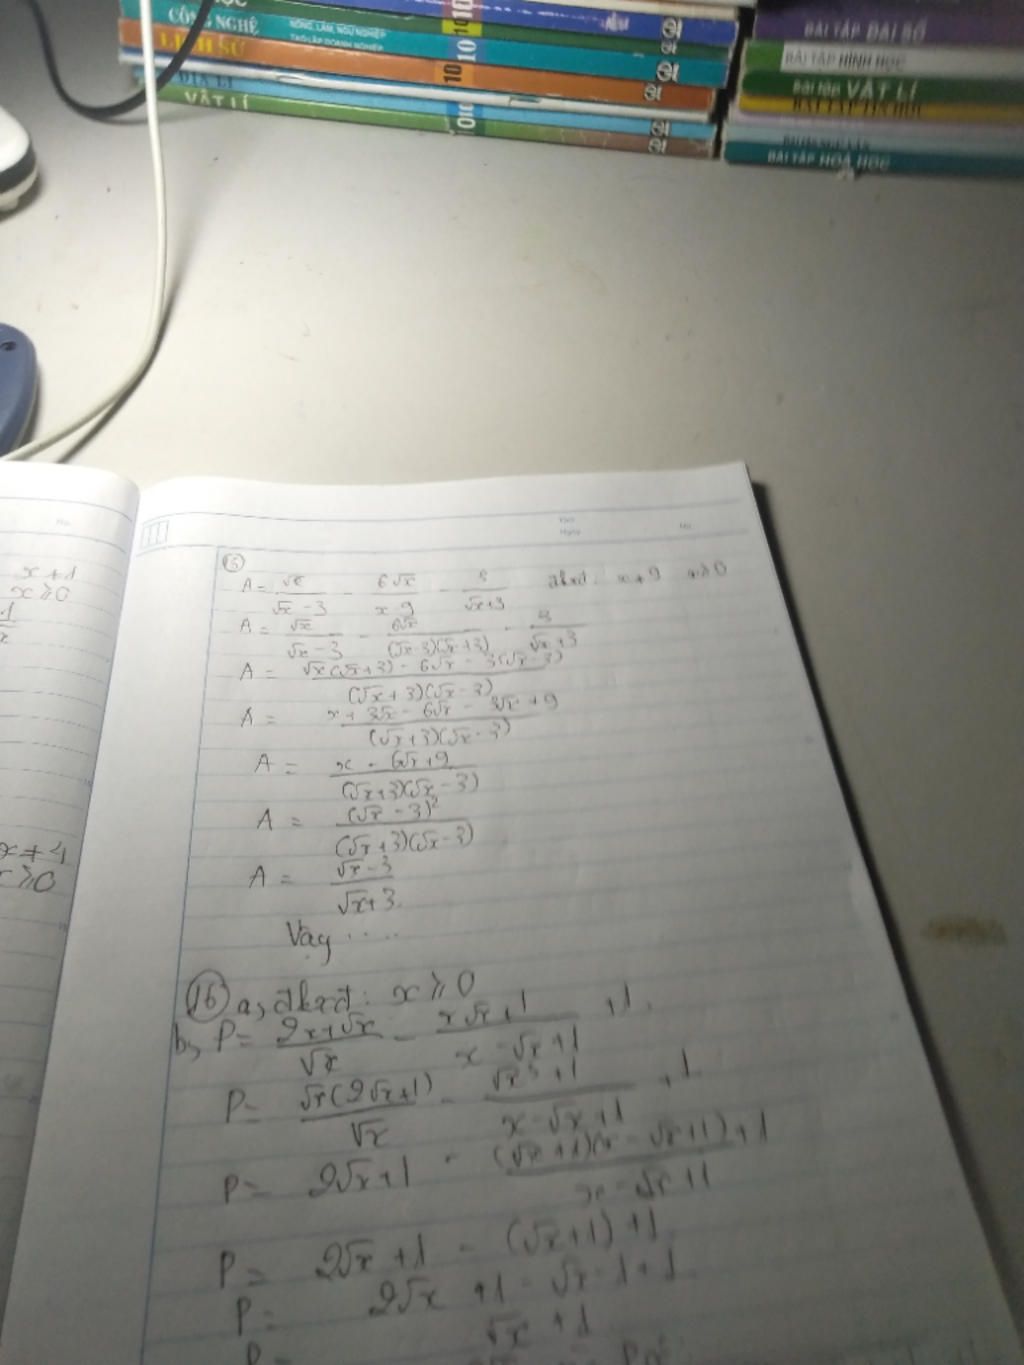 CÔNG NGHỆ NÔNG, LÂM, NGƯ NGHIỆP 10
TẠO LẬP DOANH NGHIỆP 10
LỊCH SỬ 10
ĐỊA LÍ
VẬT LÍ 10
BÀI TẬP ĐẠI SỐ
BÀI TẬP HÌNH HỌC
BÀI TẬP VẬT LÍ
BÀI TẬP HOÁ HỌC
x + 1
x ≥ 0
x ≠ 1
x ≥ 0
15
A = √x/(√x - 3) - 6√x/(x - 9) - 3/(√x + 3) đkxđ: x ≠ 9 x ≥ 0
A = √x/(√x - 3) - 6√x/((√x - 3)(√x + 3)) - 3/(√x + 3)
A = (√x(√x + 3) - 6√x - 3(√x - 3))/((√x + 3)(√x - 3))
A = (x + 3√x - 6√x - 3√x + 9)/((√x + 3)(√x - 3))
A = (x - 6√x + 9)/((√x + 3)(√x - 3))
A = (√x - 3)²/((√x + 3)(√x - 3))
A = (√x - 3)/(√x + 3)
Vậy .....
16 a, đkxđ: x ≥ 0
b, P = (2x + √x)/√x - (x√x + 1)/(x - √x + 1) + 1
P = √x(2√x + 1)/√x - (√x³ + 1)/(x - √x + 1) + 1
P = 2√x + 1 - (√x + 1)(x - √x + 1)/(x - √x + 1) + 1
P = 2√x + 1 - (√x + 1) + 1
P = 2√x + 1 - √x - 1 + 1
P = √x + 1